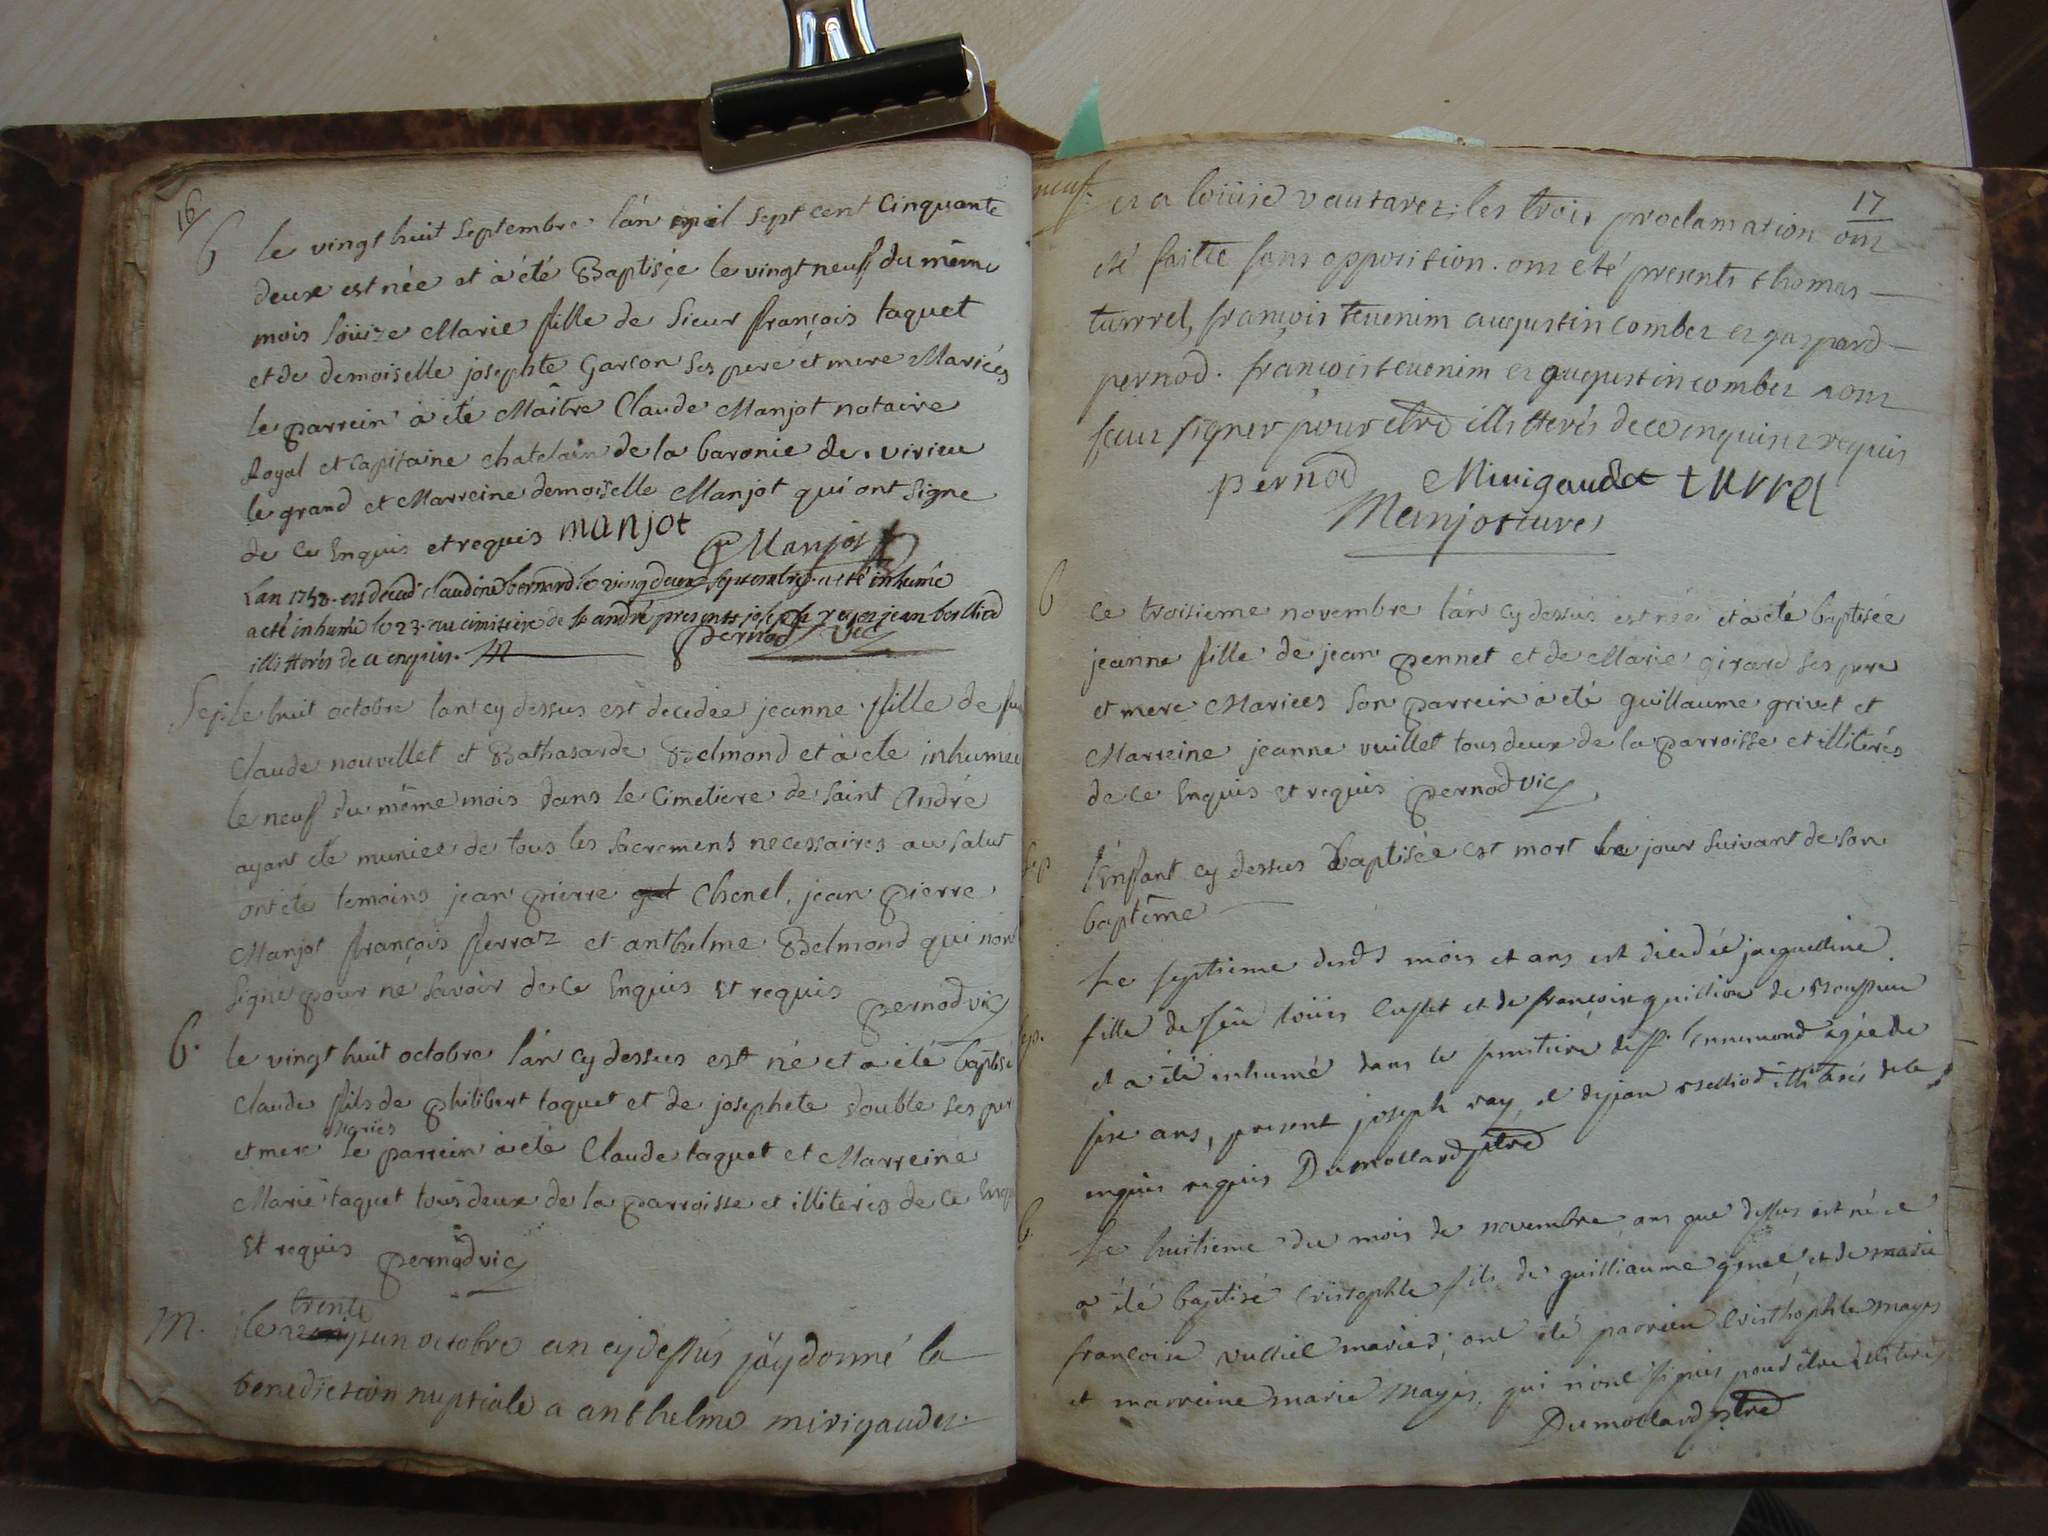 16
B le vingt huit Septembre l'an mil sept cent Cinquante
deux est née et à été Baptisée le vingt neuf du même
mois loüize Marie fille de Sieur françois taquet
et de demoiselle josephte Garson ses pere et mere Mariées
le parrein à été Maître Claude Manjot notaire
Royal et Capitaine chatelain de la baronie de virieu
le grand et Marreine demoiselle Manjot qui ont signe
de ce Enquis et requis manjot
Manjot
Lan 1752 est decede claudine bernard le ving deux septembre a eté inhumé
a eté inhumé le 23 au cimitiere de st andré presents joseph rey et jean borlliod
illitterés de ce enquis. pernod vic
Sep le huit octobre lan cy dessus est decedée jeanne fille de feu
Claude nouvellet et Bathasarde Belmond et à eté inhumée
le neuf du même mois dans le Cimetiere de Saint André
ayant été muniee de tous les sacremens necessaires au salut
ont été temoins jean pierre Chenel, jean pierre
Manjot françois ferraz et anthelme Belmond qui n'ont
signe pour ne savoir de ce Enquis Et requis pernod vic
B. le vingt huit octobre l'an cy dessus est né et a été baptisé
Claude fils de philibert taquet et de josephte double ses per
mariés
et mere le parrein à été Claude taquet et Marreine
Marie taquet tous deux de la parroisse et illiterés de ce Enqu
Et requis pernod vic
trente
M. le un octobre an cy dessus j'ay donné la
benediction nuptiale a anthelme mirigaudet
17
neuf. et a loüise vautaret; les trois proclamation ont
eté faitte sans opposition. ont eté presents thomas
turrel, françois tevenim augustin combet et gaspard
pernod. françois tevenim et augustin combet n ont
sceu signer pour etre illitterés de ce enquis et requis
pernod Mirigaudet turrel
Manjot curé
B Le troisieme novembre l'an cy dessus est née et à été baptisée
jeanne fille de jean pennet et de Marie girard ses pere
et mere Mariees son parrein à été guillaume grivet et
Marreine jeanne vuillet tous deux de la parroisse et illiterés
de ce Enquis et requis pernod vic
Sep l'Enfant cy dessus Baptisée est mort le jour suivant de son
baptême
Sep. Le septieme desds mois et ans est décédée jacqueline
fille de feu loüis et de françoise guillion de
et a été inhumé dans le simitiere de st Ennemond agée de
six ans, present joseph ray, et de jean illiterés de ce
enquis requis Dumollard ptre
B Le huitieme du mois de novembre, ans que dessus est né et
a été baptisé Cristophle fils de guilliaume genet et de marie
françoise vulliel mariés; ont été parrein Cristhophle mayis
et marreine marie mayis, qui n'ont signés pour être illiterés
Dumollard ptre